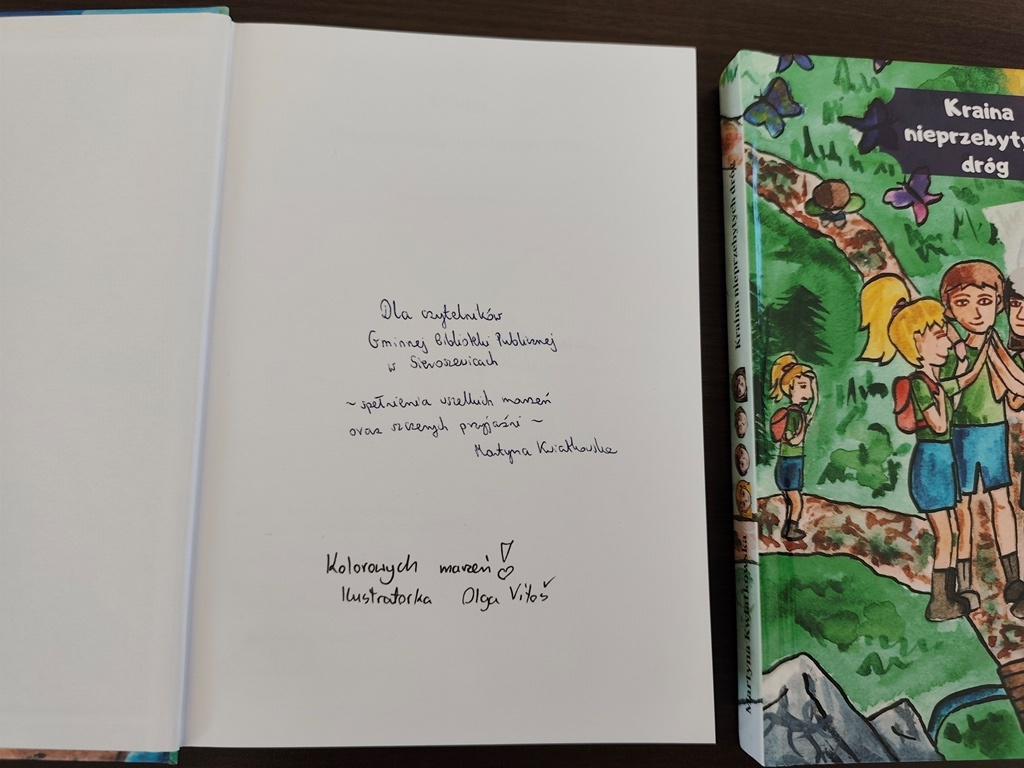 Dla czytelników
Gminnej Biblioteki Publicznej
w Sieroszewicach
~ spełnienia wszelkich marzeń
oraz szczerych przyjaźni ~
Martyna Kwiatkowska
Kolorowych marzeń!
Ilustratorka Olga Vitoš
Kraina
nieprzebyty
dróg
Kraina nieprzebytych dróg
Martyna Kwiatkowska